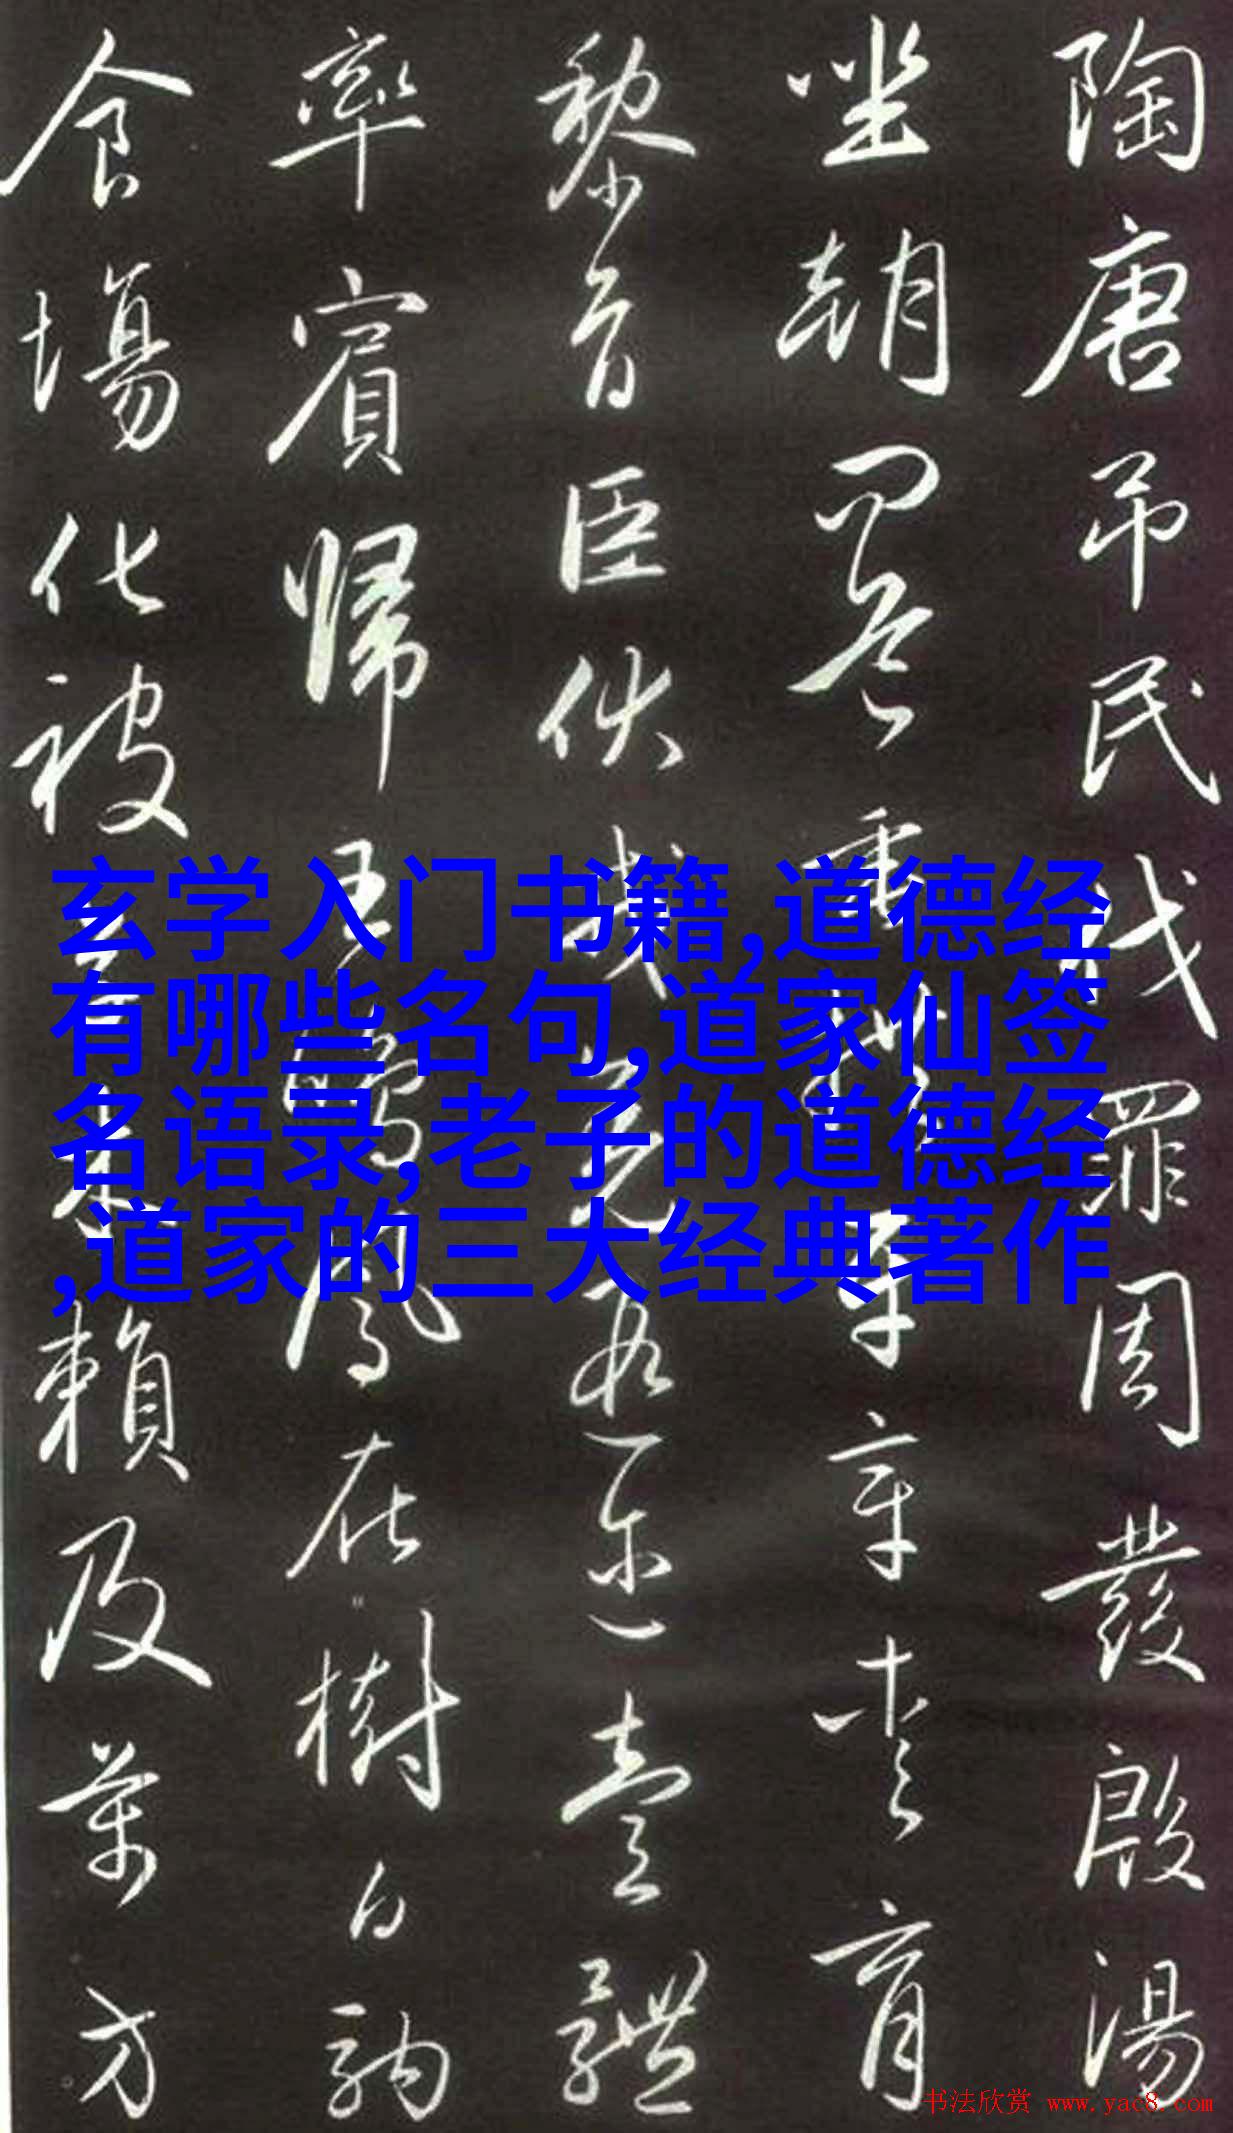 陶唐吊民伐罪周發殷湯
坐朝問道垂拱平章愛育
黎首臣伏戎羌遐邇壹體
率賓歸王鳴鳳在樹白駒
食場化被草木賴及萬方
玄学入门书籍,道德经
有哪些名句,道家仙签
名语录,老子的道德经
,道家的三大经典著作
书法欣赏 www.yac8.com